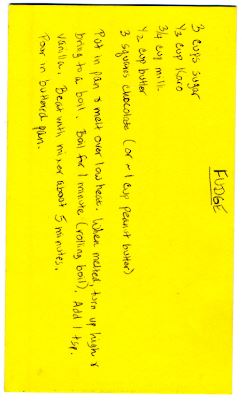 FUDGE
3 cups sugar
1/3 cup Karo
3/4 cup milk
1/2 cup butter
3 squares chocolate (or 1 cup peanut butter)
Put in pan & melt over low heat. When melted, turn up high &
bring to a boil. Boil for 1 minute (rolling boil). Add 1 tsp.
vanilla. Beat with mixer about 5 minutes.
Pour in buttered pan.